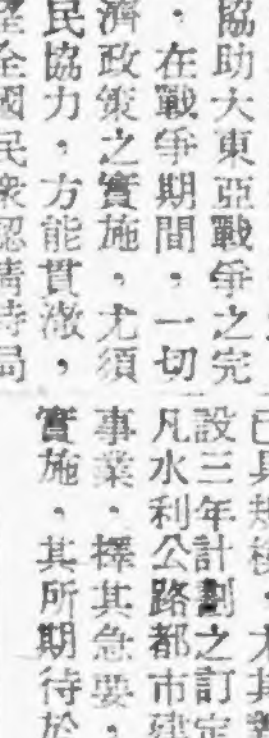 協助大東亞戰爭之完
・在戰爭期間，一切
濟政策之實施，尤須
民協力，方能貫澈，
全國民衆認清時局
已具規模，尤其
設三年計劃之訂定
凡水利公路都市建
事業，擇其急要，
實施，其所期待於